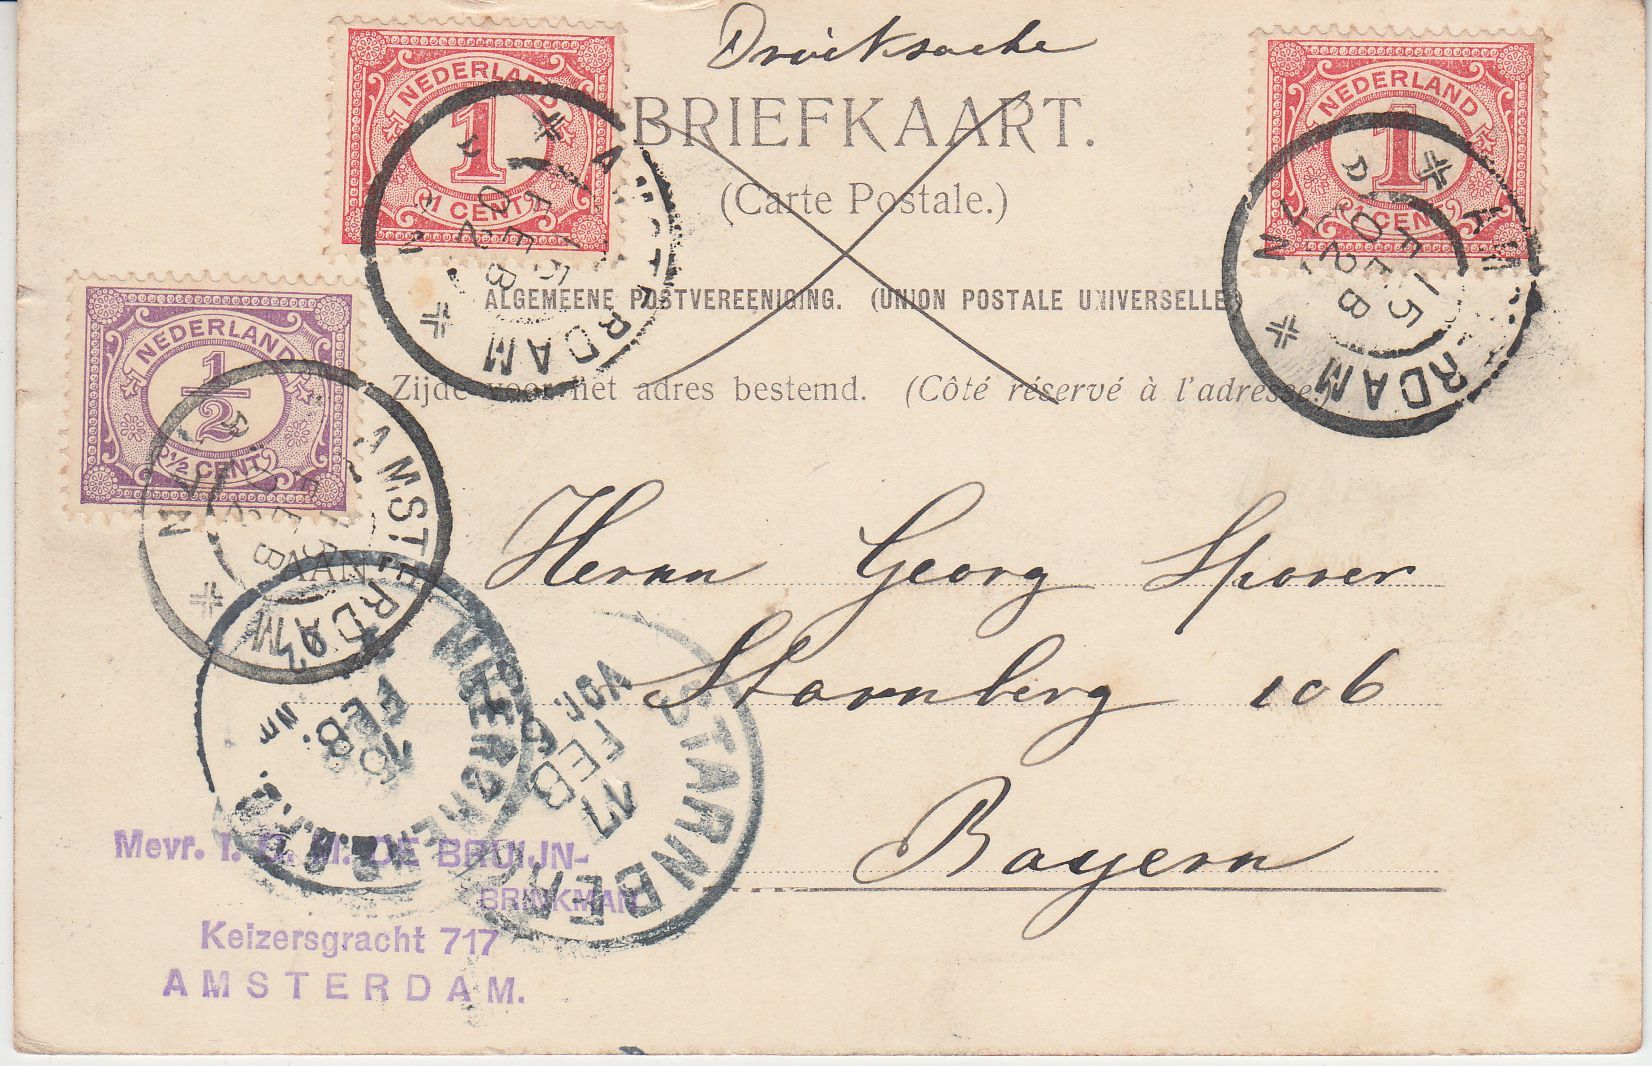 Drucksache
BRIEFKAART.
(Carte Postale.)
ALGEMEENE POSTVEREENIGING. (UNION POSTALE UNIVERSELLE)
Zijde voor het adres bestemd. (Côté réservé à l'adresse.)
NEDERLAND
1
1 CENT
NEDERLAND
1
1 CENT
NEDERLAND
1/2
1/2 CENT
AMSTERDAM
15 FEB
AMSTERDAM
15 FEB
AMSTERDAM
15 FEB
Herrn Georg Sporer
Starnberg 106
Bayern
STARNBERG
17 FEB
VOR. 6
FEB
Mevr. DE BRUIJN-
BRINKMAN
Keizersgracht 717
AMSTERDAM.